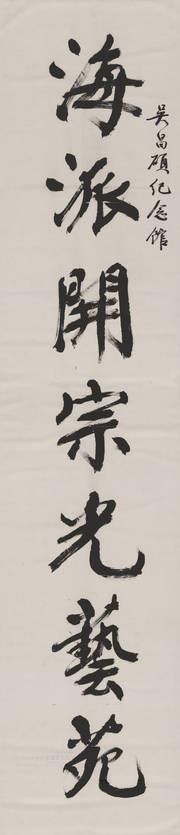 吴昌碩纪念馆
海派開宗光藝苑